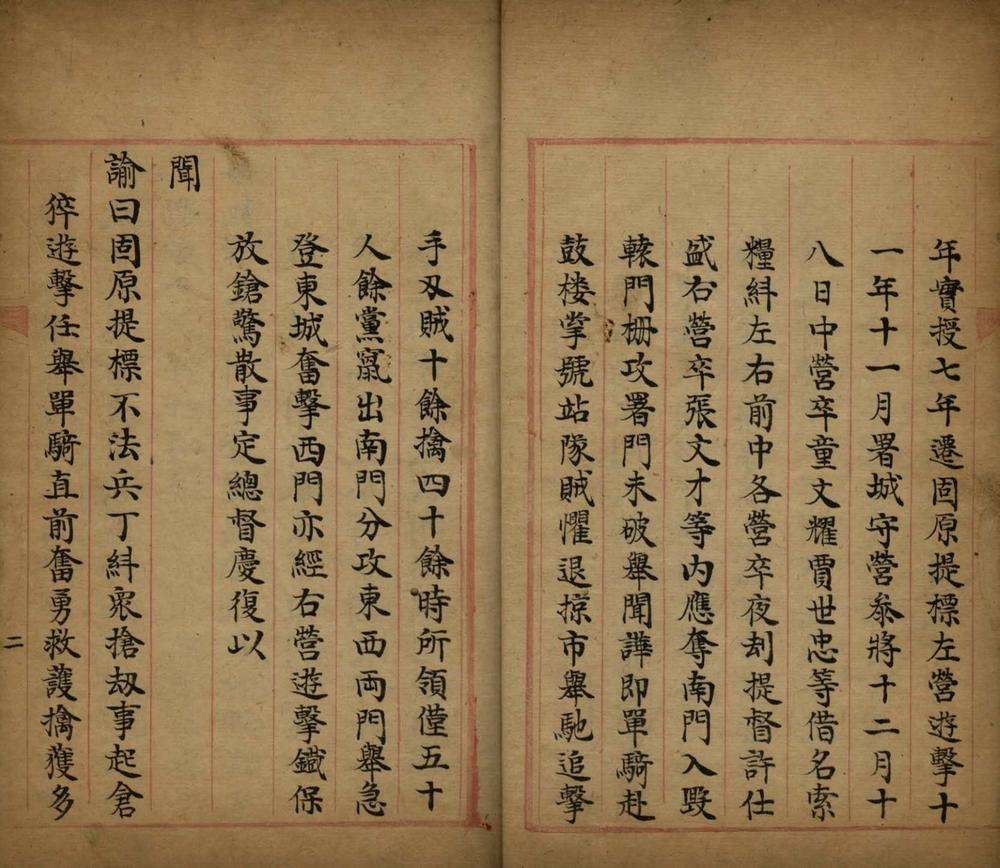 年實授七年遷固原提標左營遊擊十
一年十一月署城守營叅將十二月十
八日中營卒童文耀賈世忠等借名索
糧糾左右前中各營卒夜刦提督許仕
盛右營卒張文才等内應奪南門入毀
轅門柵攻署門未破舉聞譁即單騎赴
鼓楼掌號站隊賊懼退掠市舉馳追擊
手刄賊十餘擒四十餘時所領僅五十
人餘黨竄出南門分攻東西両門舉急
登東城奮擊西門亦經右營遊擊鐵保
放鎗驚散事定總督慶復以
聞
諭曰固原提標不法兵丁糾衆搶刼事起倉
猝遊擊任舉單騎直前奮勇救護擒獲多
二